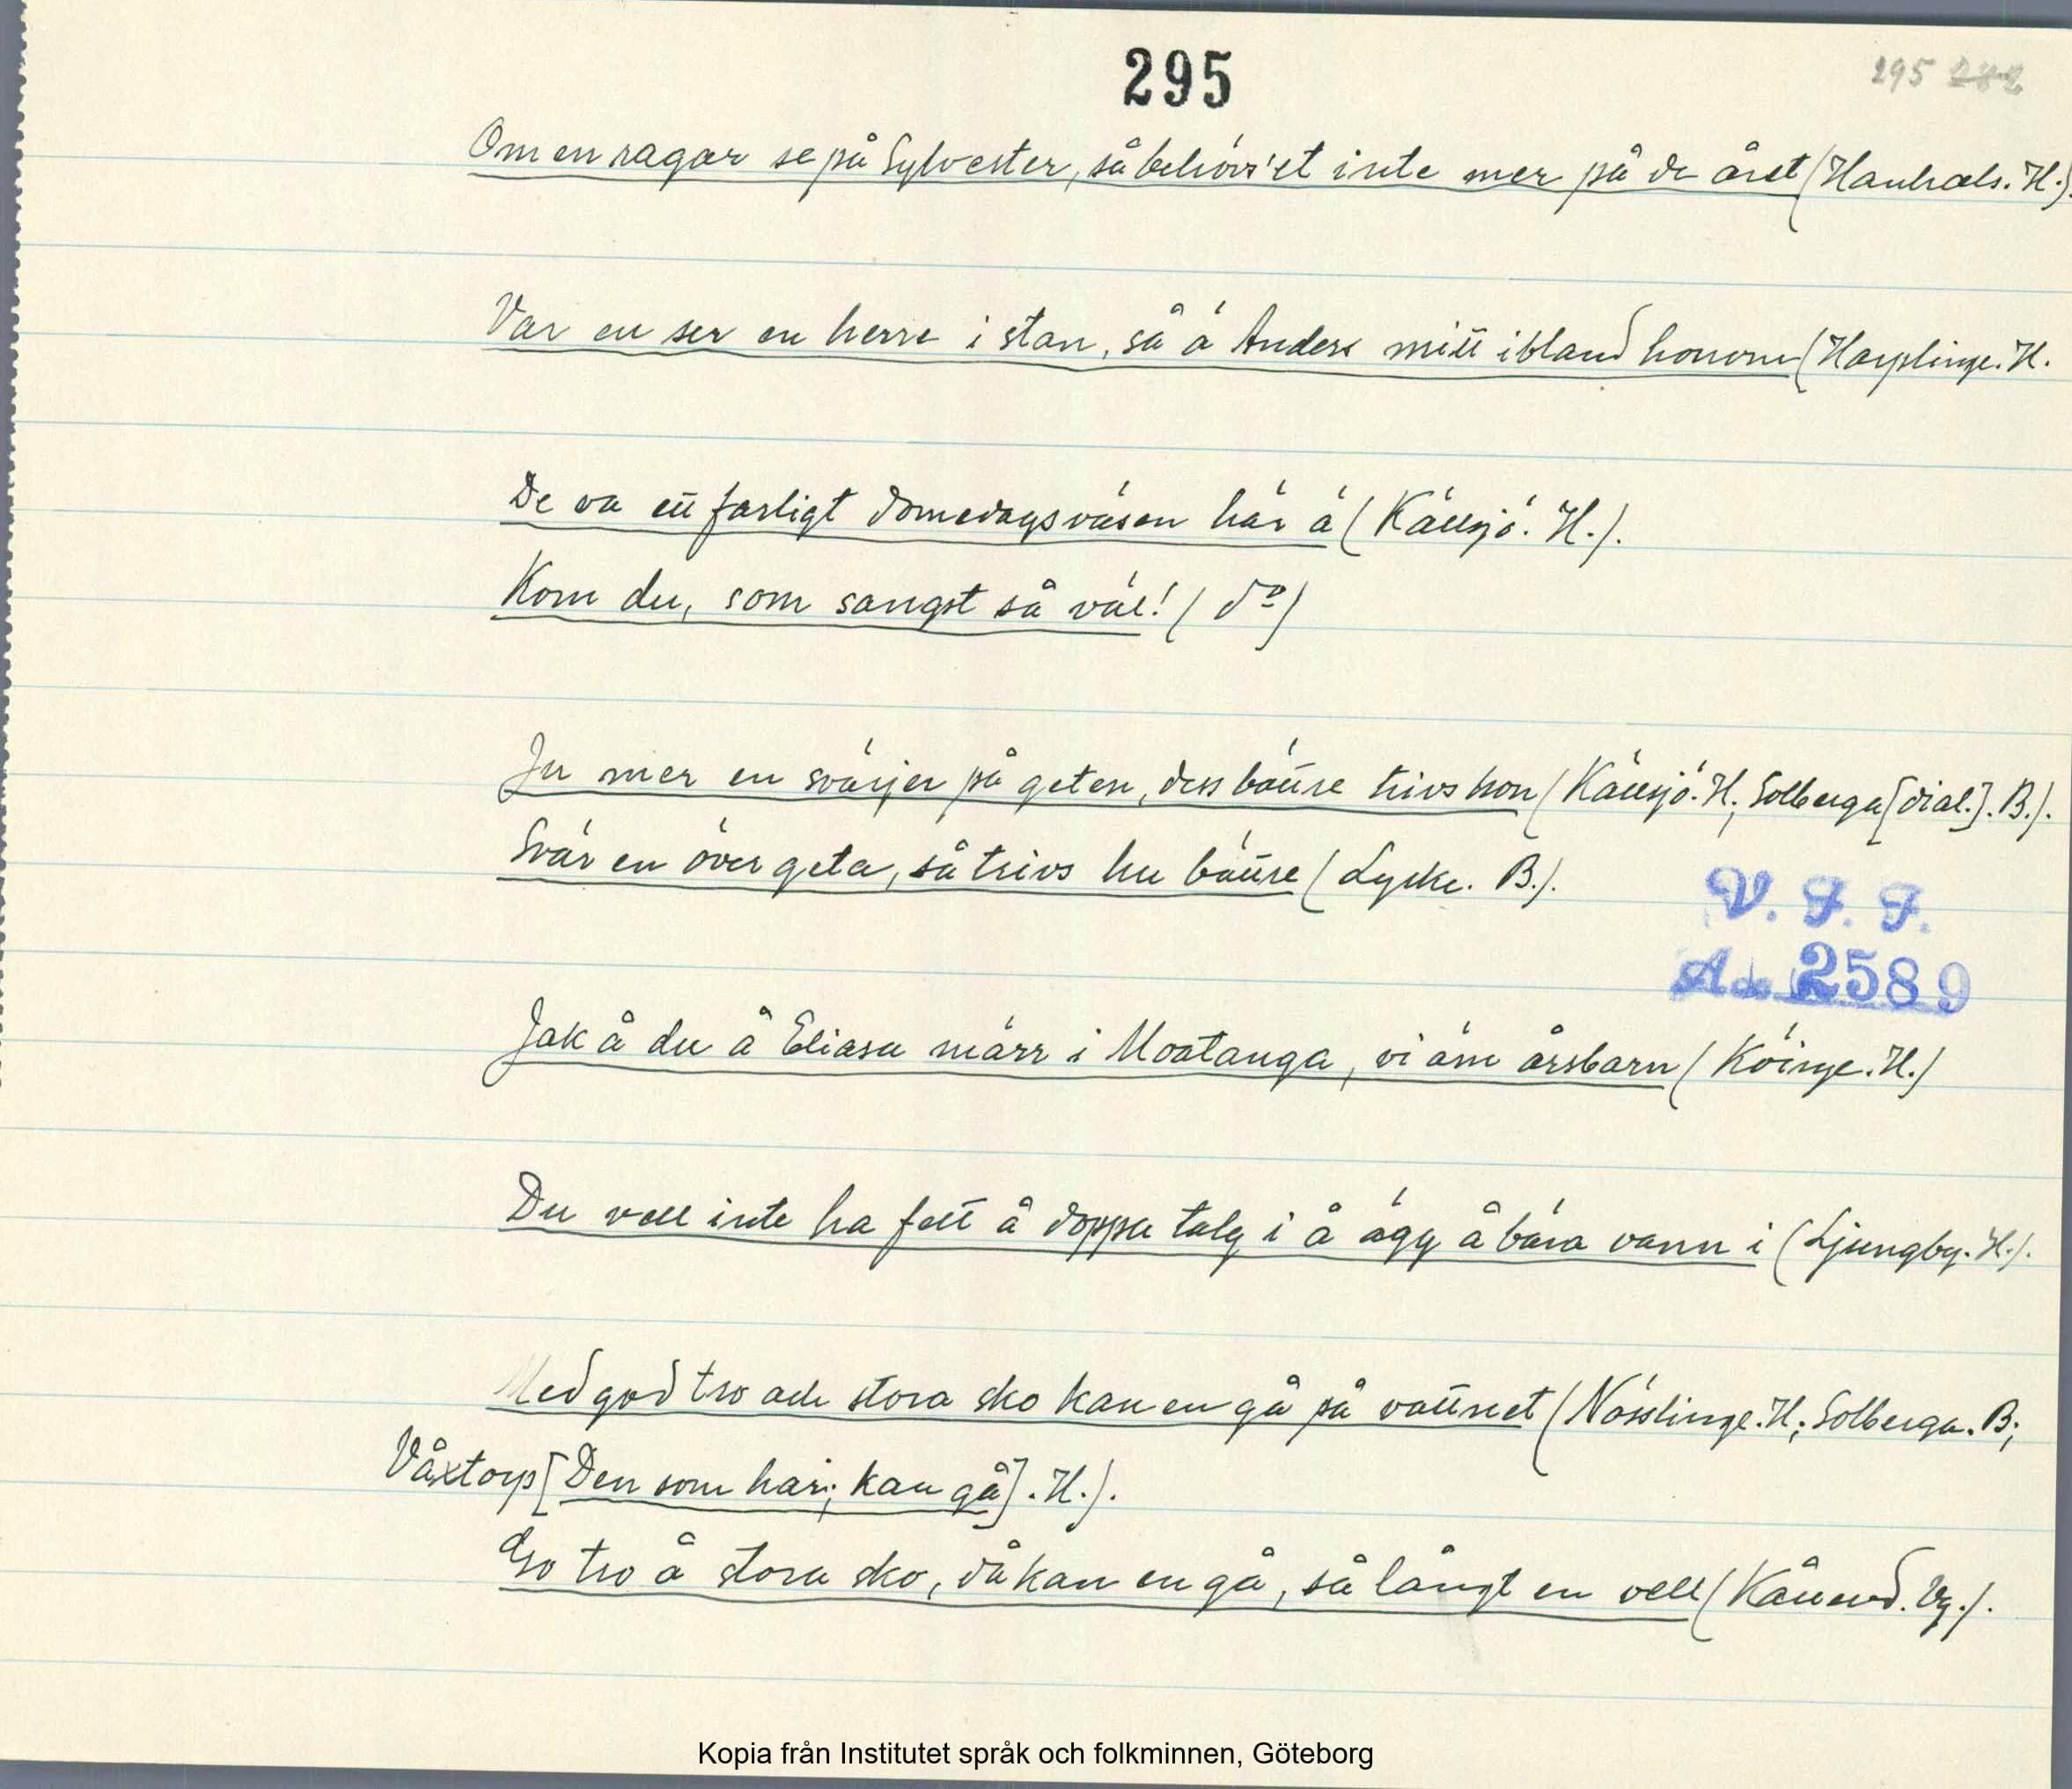 295
295 282
Om en ragar se på Sylvester, så behövs'et inte mer på de året (Hanhals. H.).
Var en ser en herre i stan, så ä Anders mitt ibland honom (Harplinge. H.
De va ett farligt domedagsväsen här ä (Källsjö. H.).
Kom du, som sangst så väl! (do)
Ju mer en svärjer på geten, dess bättre trivs hon (Källsjö. H; Solberga [dial.]. B.).
Svär en över geta, så trivs hu bättre (Lycke. B.).
V. F. F.
2589
Jak å du å Eliasa märr i Moatanga, vi äm årsbarn (Köinge. H.)
Du vell inte ha fett å doppa talg i å ägg å bära vann i (Ljungby. H.).
Med god tro och stora sko kan en gå på vattnet (Nösslinge. H; Solberga. B;
Våxtorp [Den som har; kan gå]. H.).
Go tro å stora sko, då kan en gå, så långt en vell (Kållered. Vg.).
Kopia från Institutet språk och folkminnen, Göteborg